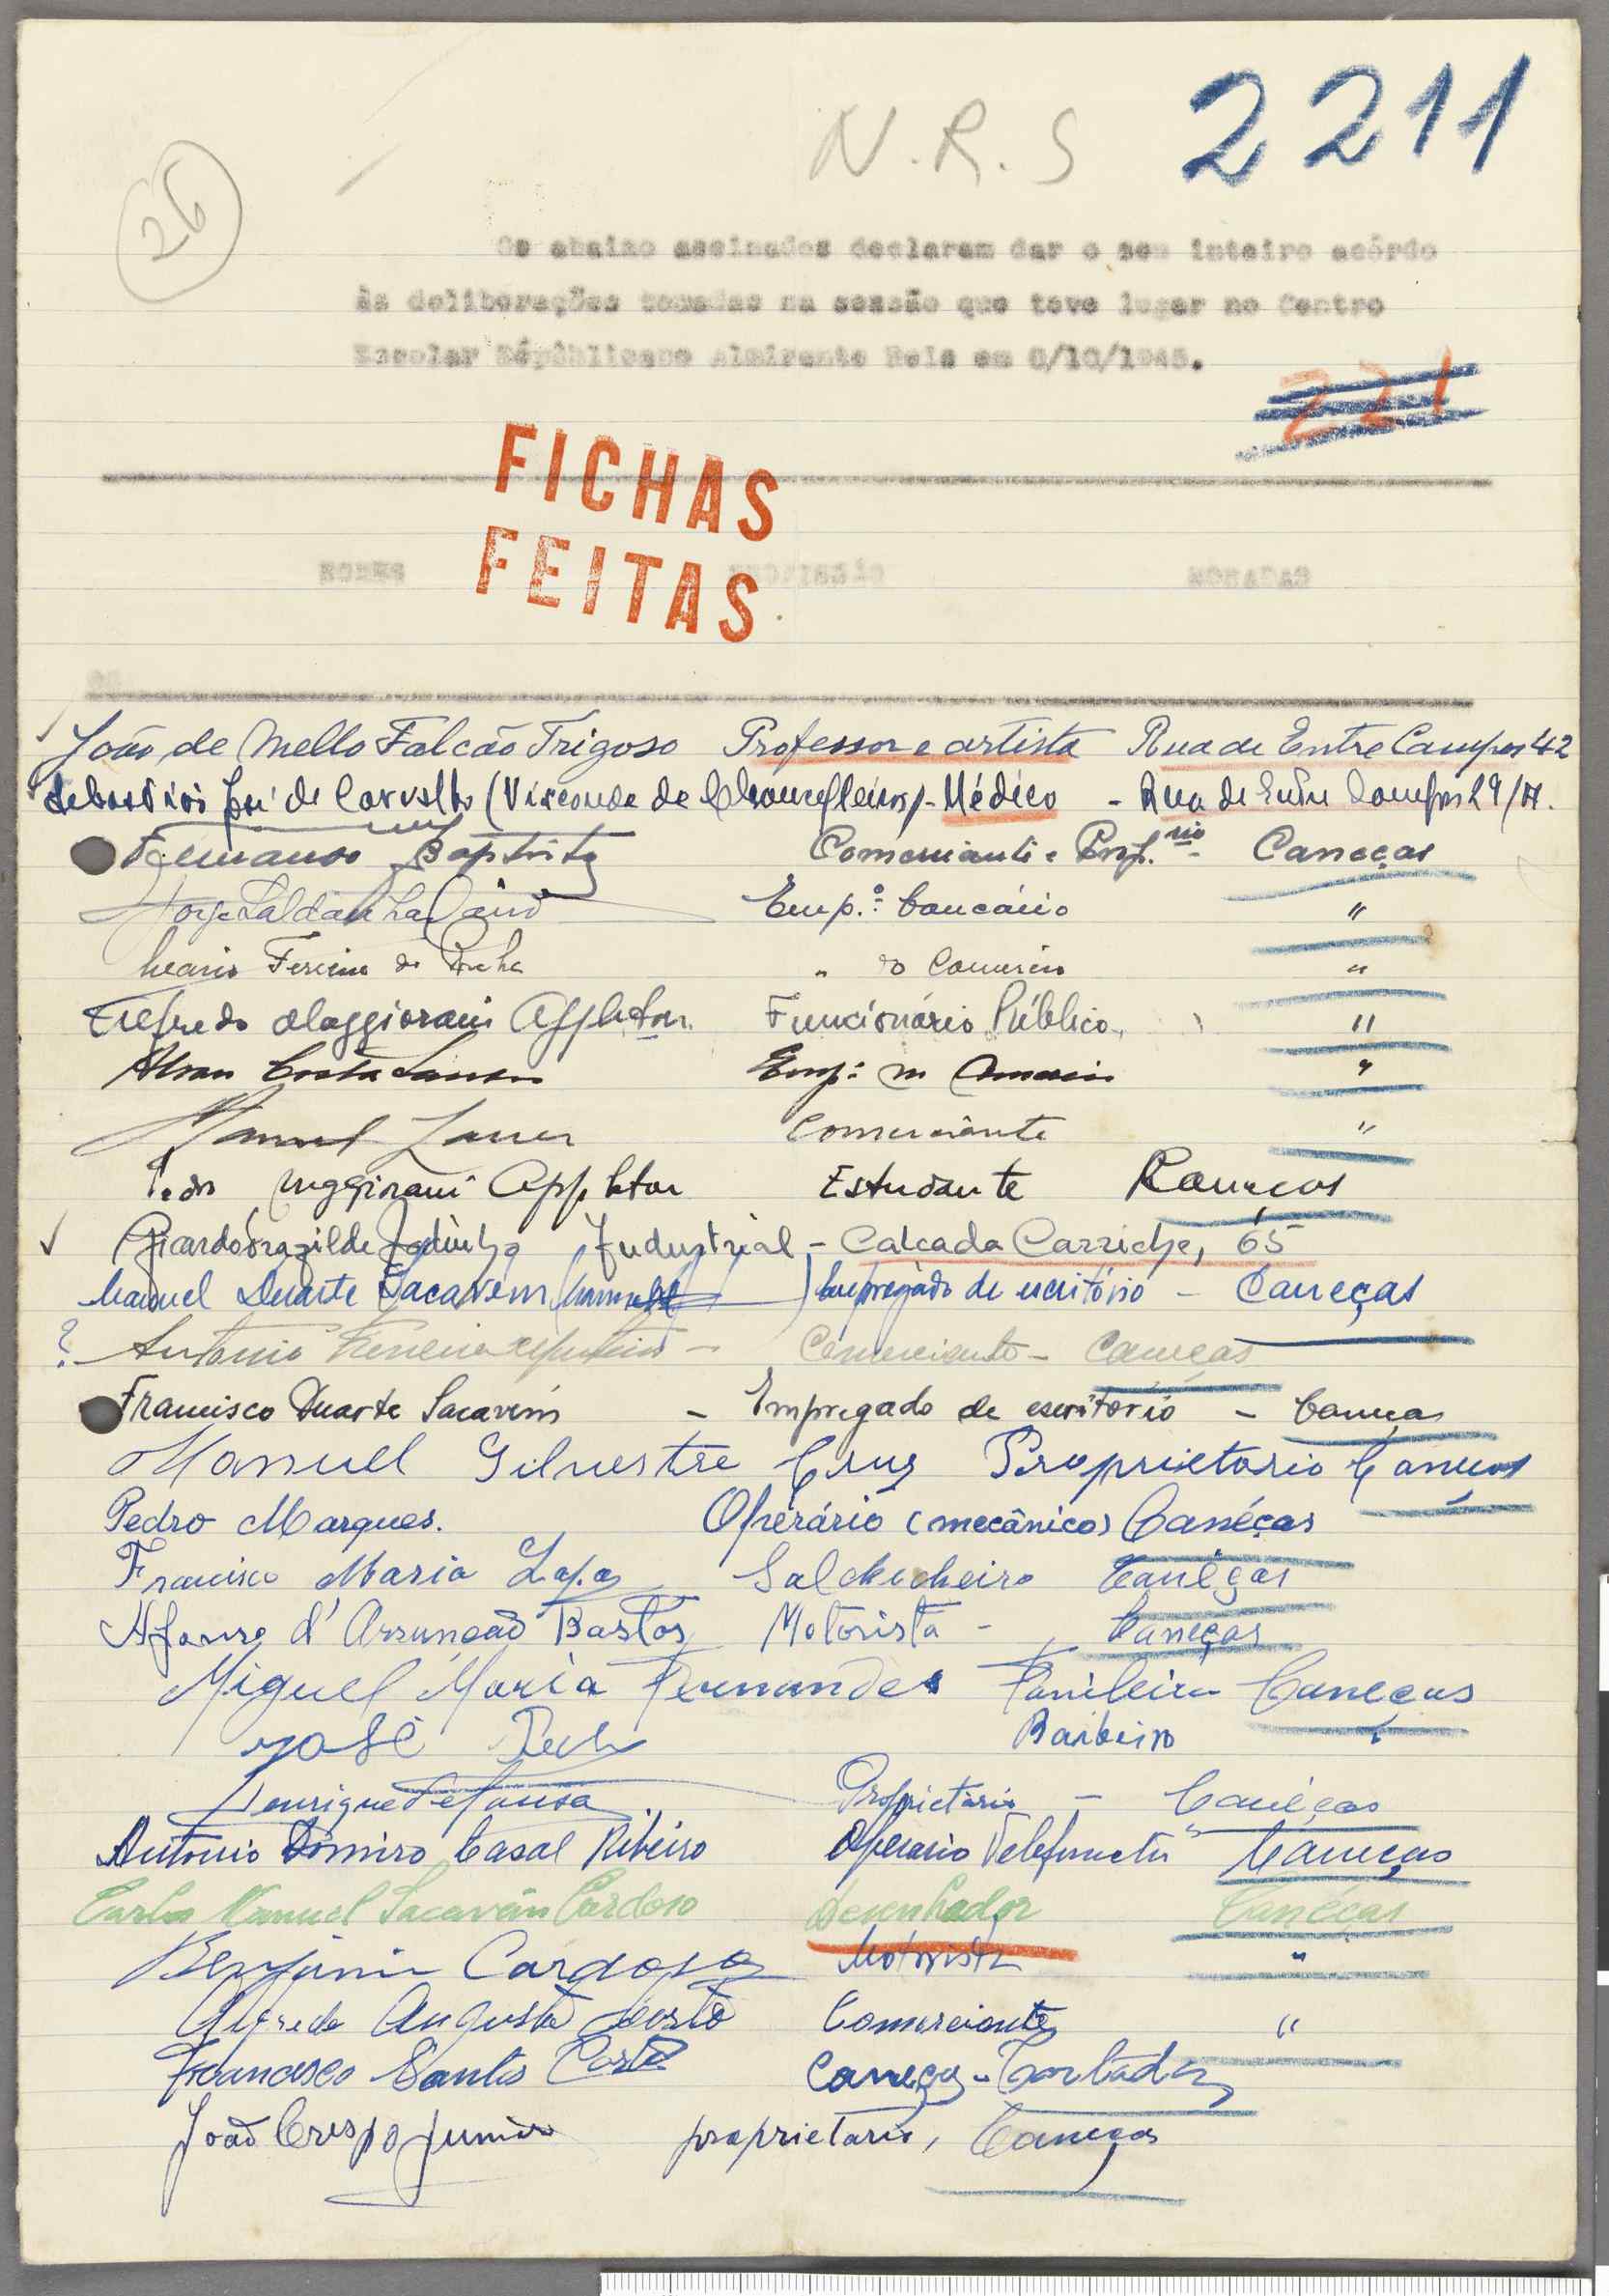 N.R.S 2211
26
Os abaixo assinados declaram dar o seu inteiro acôrdo
às deliberações tomadas na sessão que teve lugar no Centro
Escolar Républicano Almirante Reis em 8/10/1945.
221
FICHAS
FEITAS
NOMES PROFISSÃO MORADAS
João de Mello Falcão Trigoso Professor e artista Rua de Entre Campos 42
Sebastião José de Carvalho (Visconde de Chancelleiros) - Médico - Rua de Entre Campos 29/
Fernando Baptista Comerciante e Prop.rio - Caneças
Jorge Saldanha Emp.º bancário "
Mario Ferreira da Rocha " do Comércio "
Trefredo Maggiorani Appleton Funcionário Público, "
Costa Emp.º "
Manuel Comerciante "
Pedro Maggiorani Appleton Estudante Caneças
Ricardo Brazil de Godinho Industrial - Calçada Carriche, 65
Manuel Duarte Sacavem Empregado de escritório - Caneças
? Antonio Ferreira - Comerciante - Caneças
Francisco Duarte Sacavém - Empregado de escritorio - Caneças
Manuel Silvestre Cruz Proprietario Caneças
Pedro Marques. Operário (mecânico) Canéças
Francisco Maria Lapa Salchicheiro Canéças
Afonso d'Assunção Bastos Motorista - Caneças
Miguel Maria Fernandes Funileiro Caneças
José Barbeiro "
Henrique de Sousa Proprietario - Canéças
Antonio Ramiro Casal Ribeiro Operario Caneças
Carlos Manuel Sacavém Cardoso Desenhador Canéças
Benjamin Cardoso Motorista "
Alfredo Augusto Costa Comerciante "
Francisco Santos Costa Caneças - Cortador
João Crespo Junior proprietario, Caneças